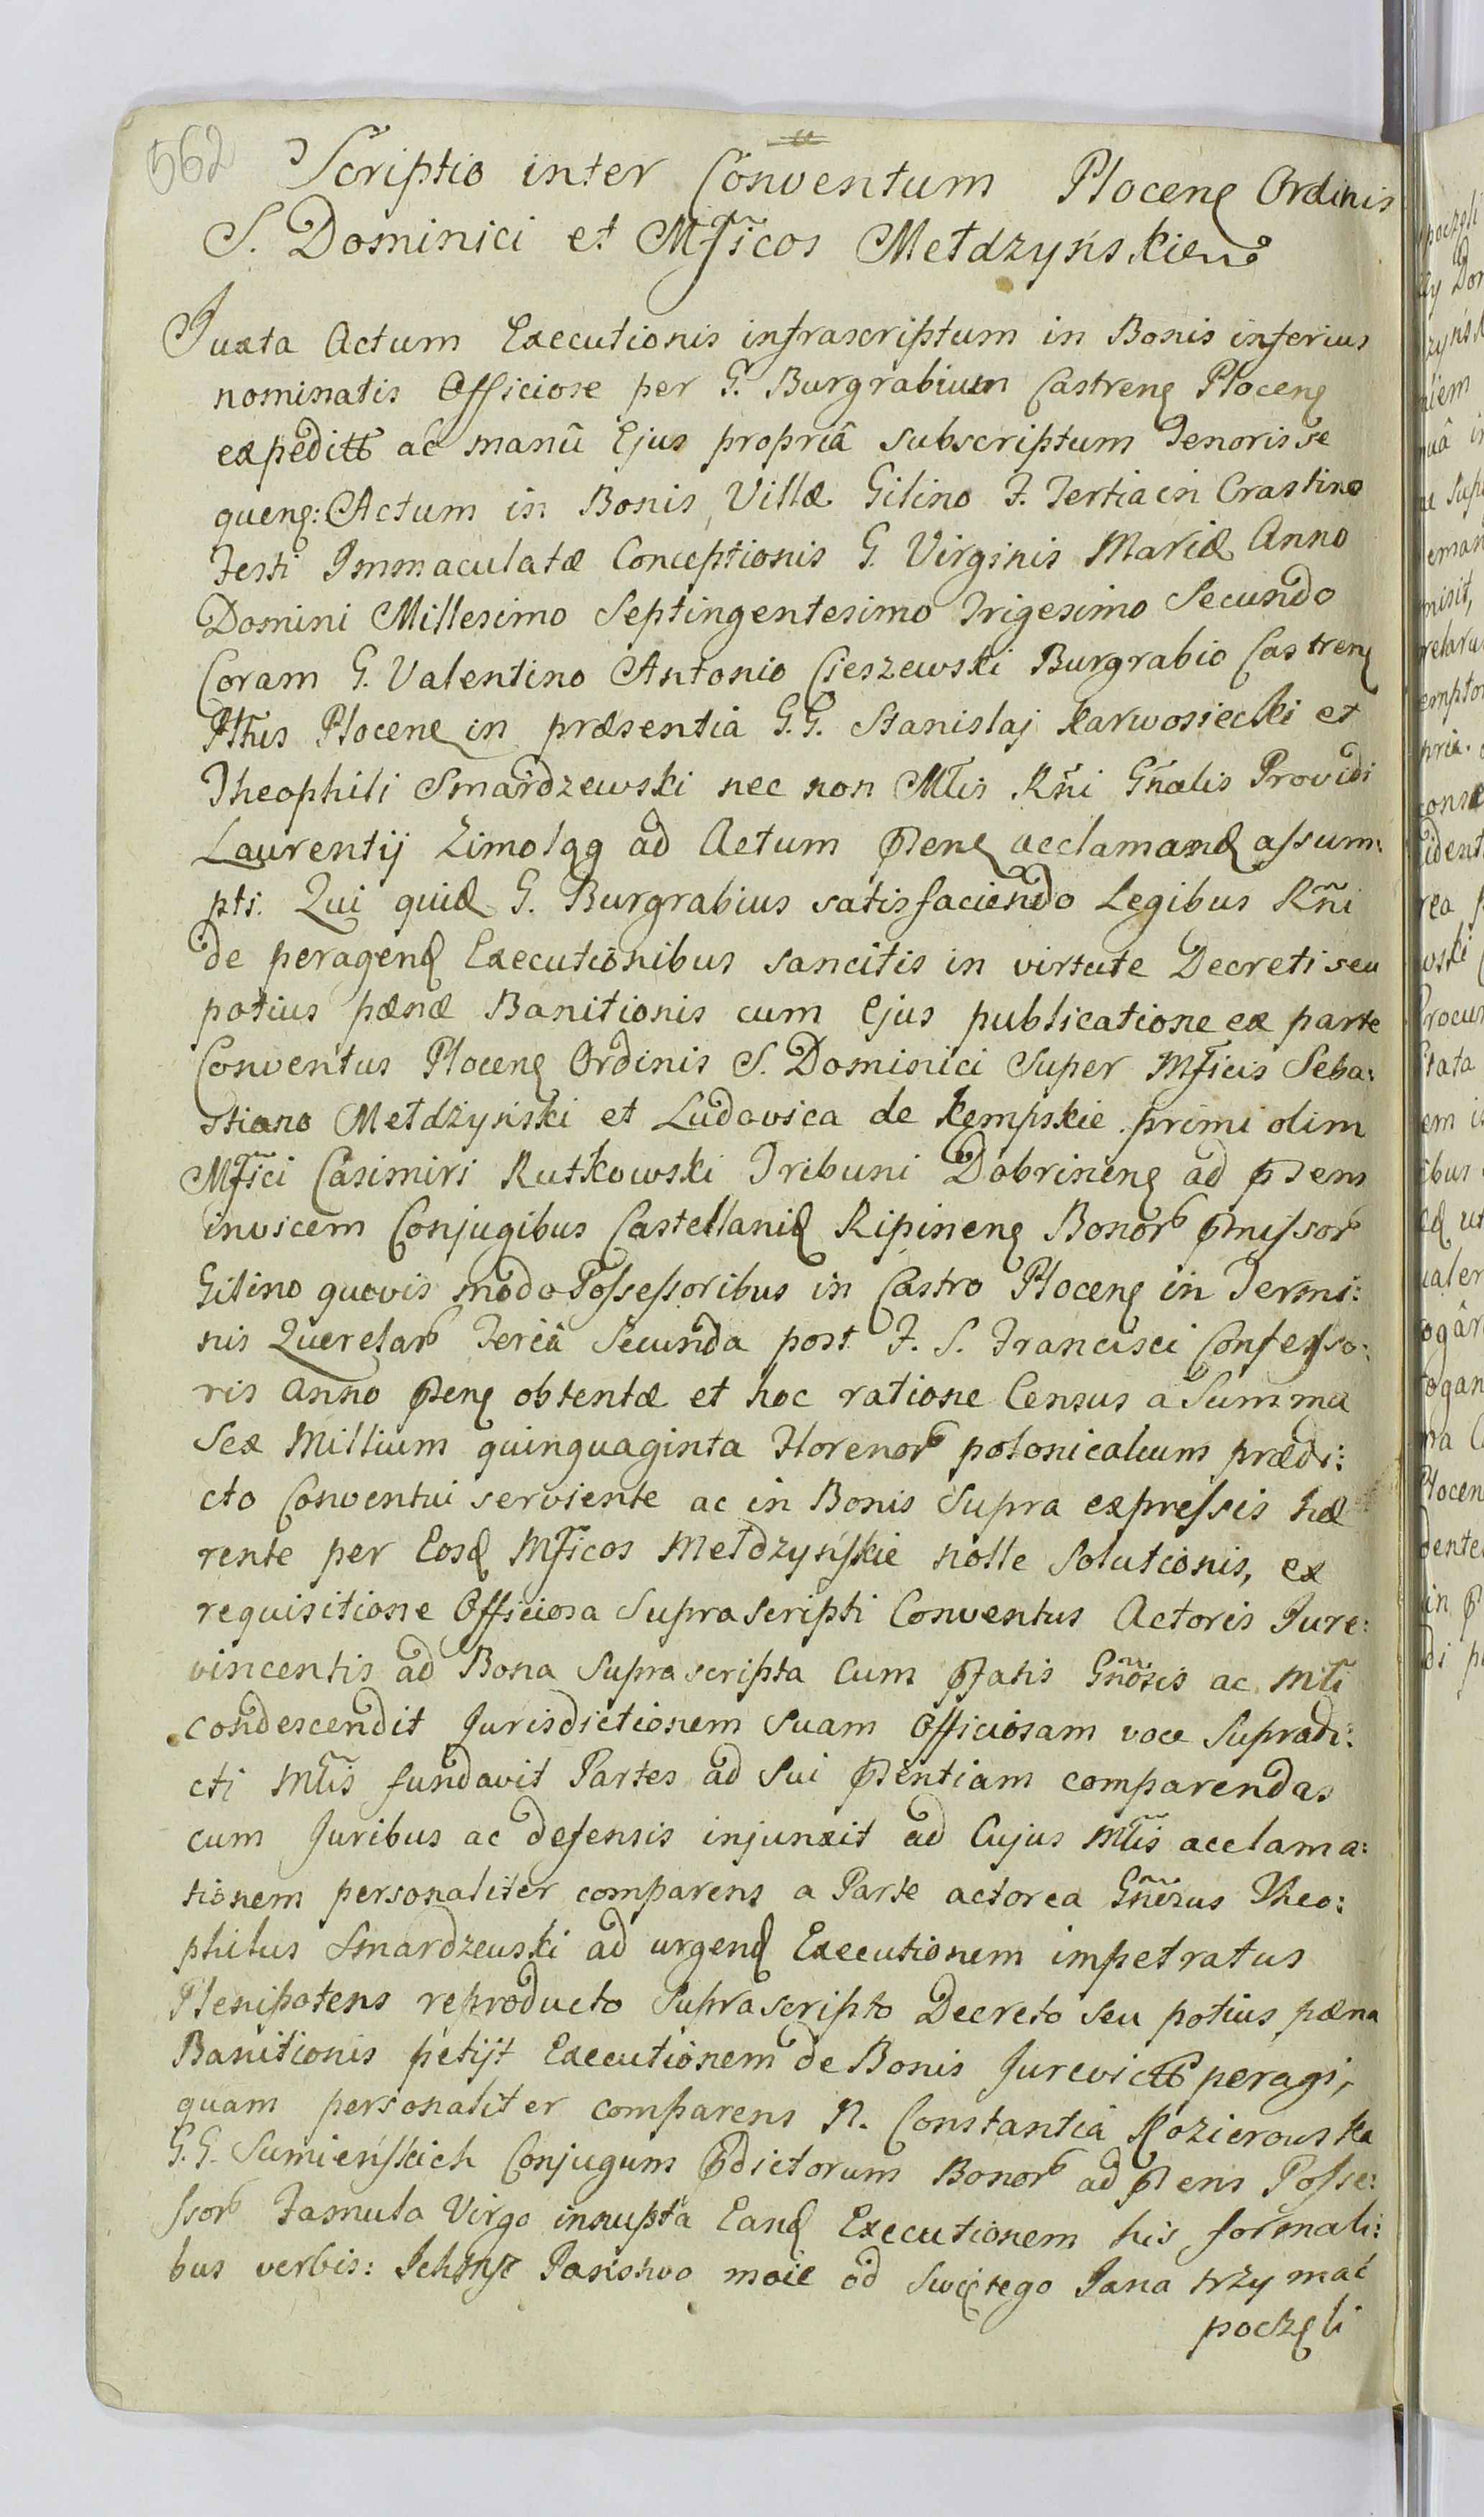 562
Scriptio inter Conventum Plocenꝭ Ordinis
S. Dominici et Mf̃icos Metdzyńskie
Juxta Actum Executionis infrascriptum in Bonis inferius
nominatis Officiose per G. Burgrabium Castrenꝭ Plocenꝭ
expeditt ac manû Ejus propriâ subscriptum Tenoris se
quenꝭ: Actum in Bonis Villæ Gilino F. Tertia in Crastino
Festi Immaculatæ Conceptionis G. Virginis Mariæ Anno
Domini Millesimo Septingentesimo Trigesimo Secundo
Coram G. Valentino Antonio Cieszewski Burgrabio Castrenꝭ
Plttis Plocenꝭ in præsentia G.G. Stanislaj Karwosiecki et
Theophili Smardzewski nec non Mt̃is Rñi Gñalis Providi
Laurentij Zimoląg ad Actum p̃senꝭ acclamand assum:
pti: Qui quid G. Burgrabius satisfaciendo Legibus Rñi
de peragend Executionibus sancitis in virtute Decreti seu
potius pænæ Banitionis cum Ejus publicatione ex parte
Conventus Plocenꝭ Ordinis S. Dominici Super Mf̃icis Seba:
stiano Metdzyński et Ludovica de Kempskie primi olim
Mf̃ici Casimiri Rutkowski Tribuni Dobrinenꝭ ad p̃sens
invicem Conjugibus Castellanid Ripinenꝭ Bonorb p̃missorb
Gilino quovis modo Possessoribus in Castro Plocenꝭ in Termi:
nis Querelarb Feriâ Secunda post F. S. Francisci Confesso:
ris Anno p̃senꝭ obtentæ et hoc ratione Census a Summa
Sex Millium quinquaginta Florenorb polonicalium prædi:
cto Conventui serviente ac in Bonis Supra expressis hæ
rente per Eosd Mf̃icos Metdzyńskie nolle Solutionis, ex
requisitione Officiosa Suprascripti Conventus Actoris Jure:
vincentis ad Bona Suprascripta Cum p̃fatis Gñosis ac Mt̃i
condescendit Jurisdictionem Suam Officiosam voce Supradi:
cti Mt̃is fundavit Partes ad Sui p̃sentiam comparendas
cum Juribus ac defensis injunxit ad Cujus Mt̃is acclama:
tionem personaliter comparens a Parte actorea Gñosus Theo:
philus Smardzeuski ad urgend Executionem impetratus
Plenipotens reproducto Suprascripto Decreto seu potius pæna
Banitionis petijt Executionem de Bonis Jurevictt peragi,
quam personaliter comparens N. Constantia Kozierowska
G.G. Sumieńskich Conjugum p̃dictorum Bonorb ad p̃sens Posse:
ssorb Famula Virgo innupta Eand Executionem his formali:
bus verbis: Ichmść Państwo moie od Swiętego Jana trzymać
poczęli